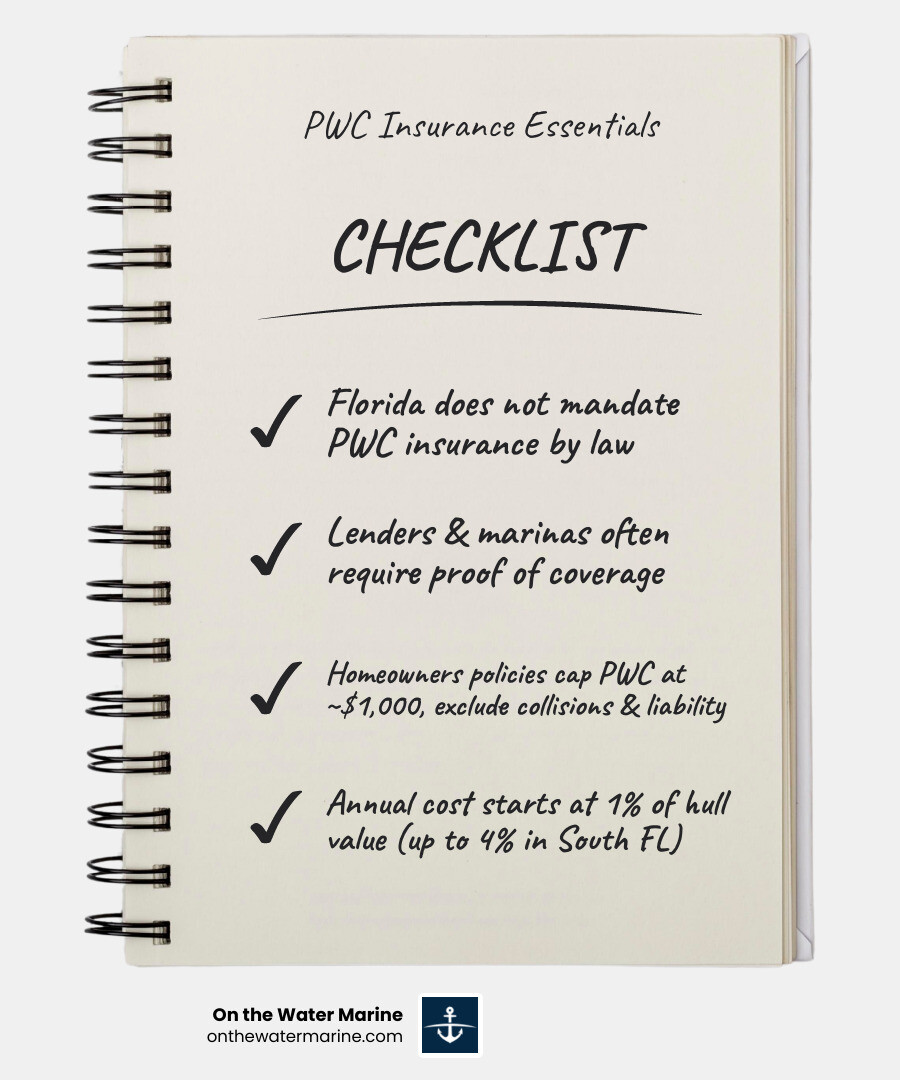 PWC Insurance Essentials
CHECKLIST
Florida does not mandate
PWC insurance by law
Lenders & marinas often
require proof of coverage
Homeowners policies cap PWC at
~$1,000, exclude collisions & liability
Annual cost starts at 1% of hull
value (up to 4% in South FL)
On the Water Marine
onthewatermarine.com